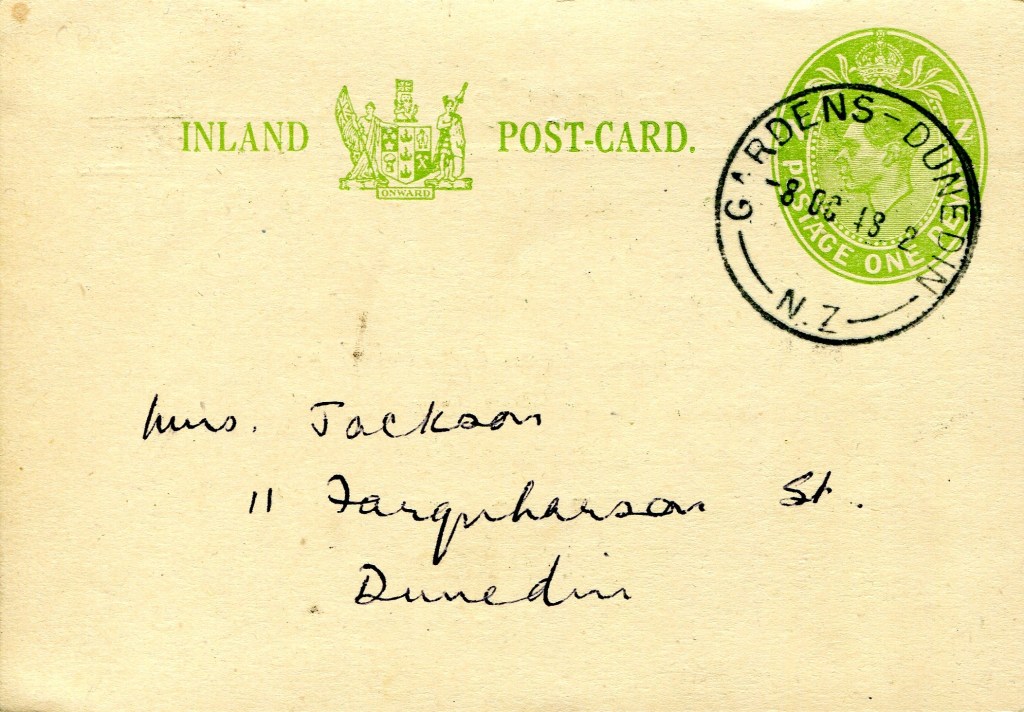 INLAND POST-CARD.
ONWARD
N Z
POSTAGE ONE PEN
GARDENS - DUNEDIN
-8 OC 48 2
N.Z
Mrs. Jackson
11 Farquharson St.
Dunedin